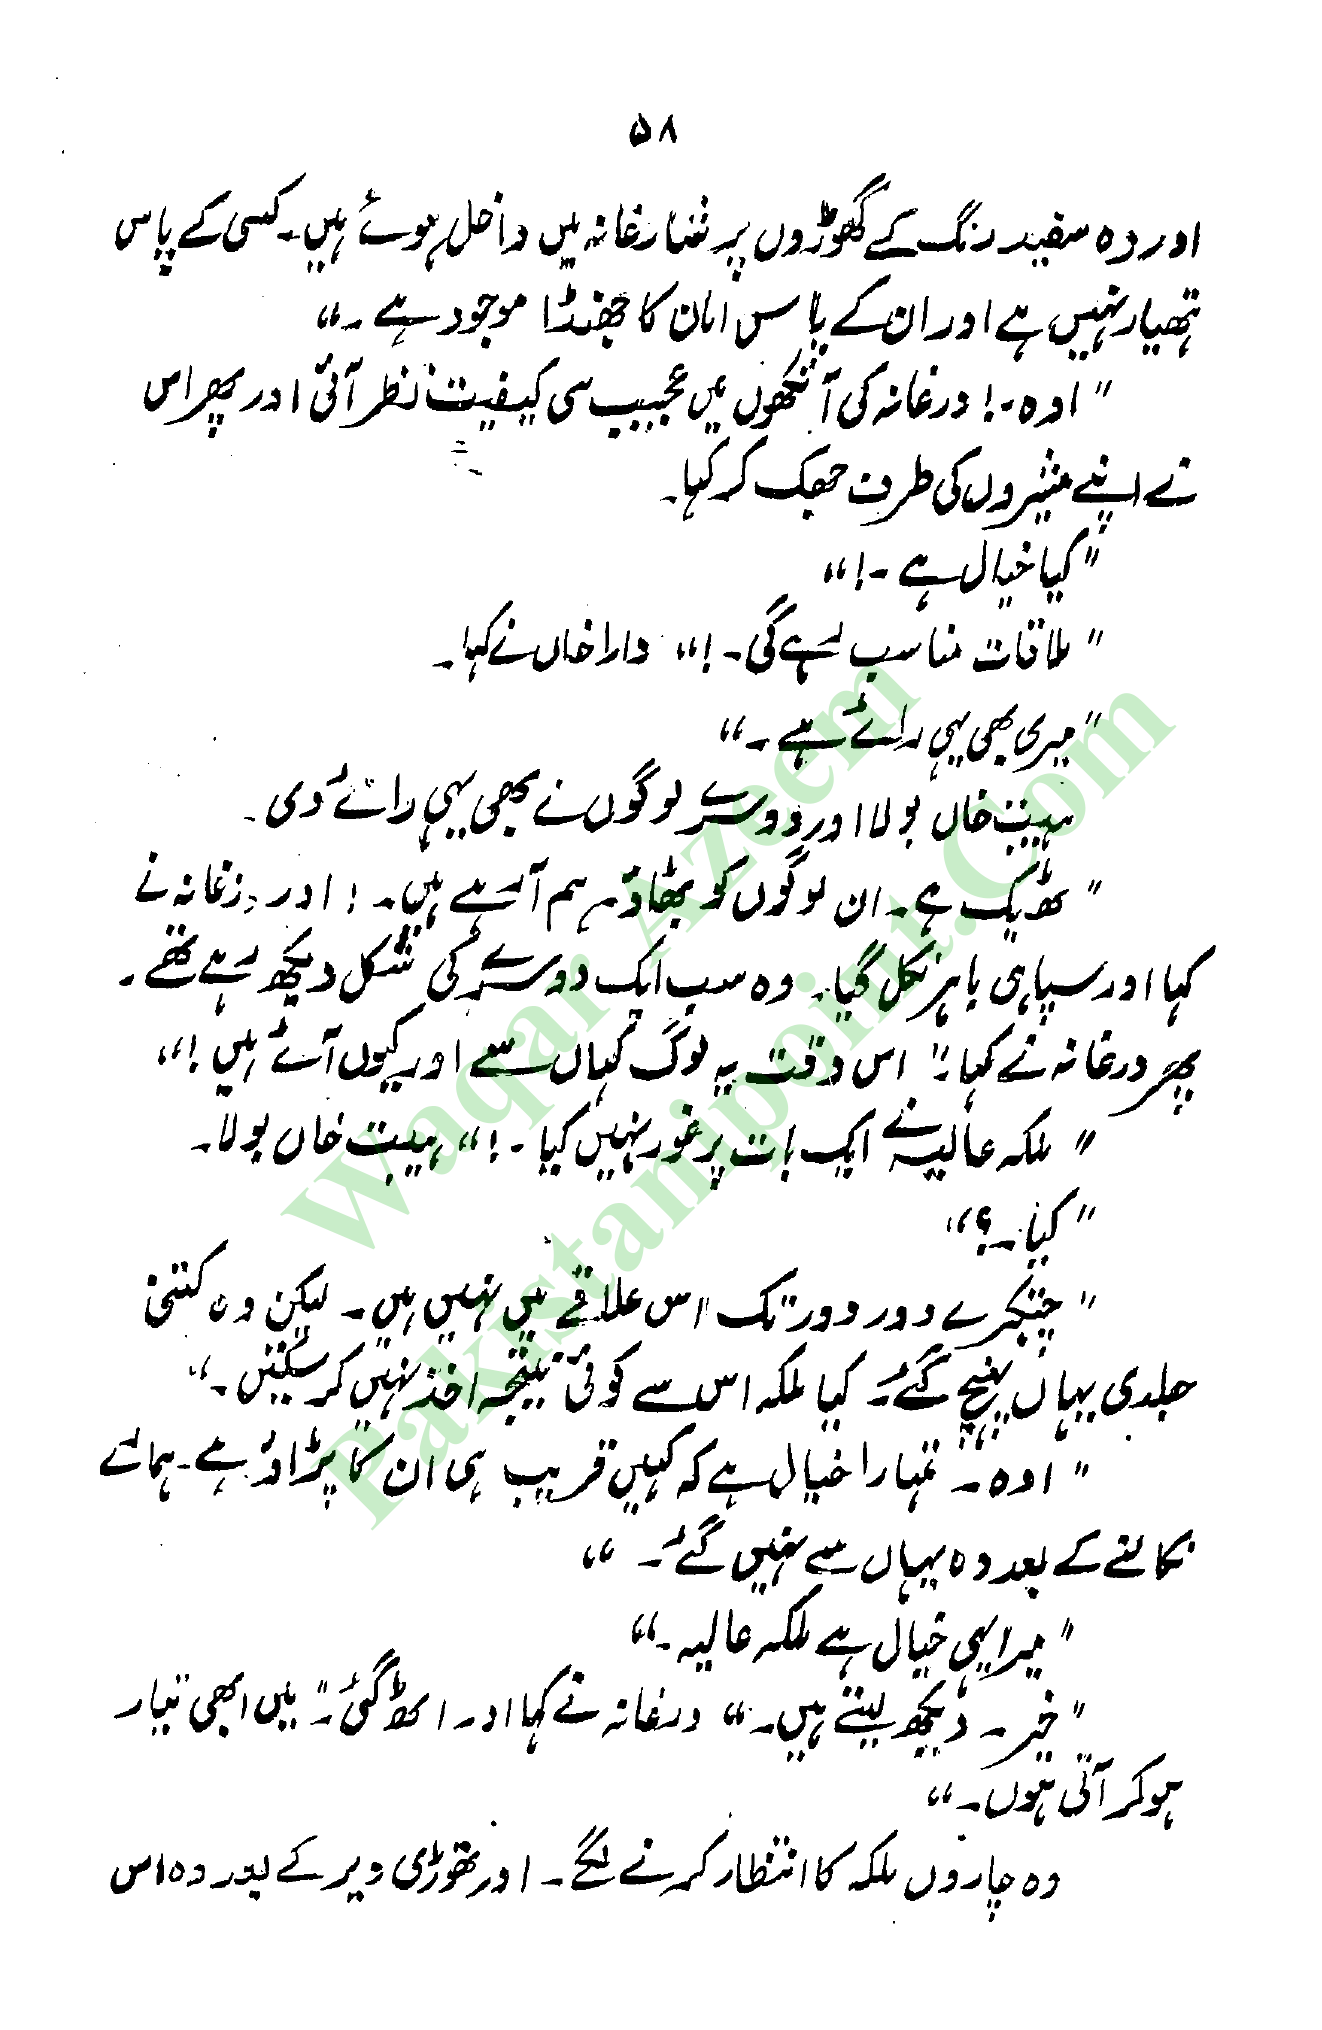 ۵۸
اور وہ سفید رنگ کے گھوڑوں پر شنارغانہ میں داخل ہوئے ہیں۔ کسی کے پاس
ہتھیار نہیں ہے اور ان کے پاس امان کا جھنڈا موجود ہے۔“
”اوہ۔! درغانہ کی آنکھوں میں عجیب سی کیفیت نظر آئی اور پھر اس
نے اپنے مشیروں کی طرف جھک کر کہا۔
”کیا خیال ہے۔!“
”ملاقات مناسب رہے گی۔!“ دارا خاں نے کہا۔
”میری بھی یہی رائے ہے۔“
ہیبت خاں بولا اور دوسرے لوگوں نے بھی یہی رائے دی۔
”ٹھیک ہے۔ ان لوگوں کو بٹھاؤ ہم آ رہے ہیں۔! اور درغانہ نے
کہا اور سپاہی باہر نکل گیا۔ وہ سب ایک دوسرے کی شکل دیکھ رہے تھے۔
پھر درغانہ نے کہا۔” اس وقت یہ لوگ کہاں سے اور کیوں آئے ہیں!“
”ملکہ عالیہ نے ایک بات پر غور نہیں کیا۔!“ ہیبت خاں بولا۔
”کیا۔؟“
”چتکبرے دور دور تک اس علاقے میں نہیں ہیں۔ لیکن وہ کتنی
جلدی یہاں پہنچ گئے۔ کیا ملکہ اس سے کوئی نتیجہ اخذ نہیں کر سکتیں۔“
”اوہ۔ تمہارا خیال ہے کہ کہیں قریب ہی ان کا پڑاؤ ہے۔ ہمارے
نکالنے کے بعد وہ یہاں سے نہیں گئے۔“
”میرا یہی خیال ہے ملکہ عالیہ۔“
”خیر۔ دیکھ لیتے ہیں۔“ درغانہ نے کہا اور اکڑ گئی۔” میں ابھی تیار
ہو کر آتی ہوں۔“
وہ چاروں ملکہ کا انتظار کرنے لگے۔ اور تھوڑی دیر کے بعد وہ اس
Waqar Azeem
Pakistanipoint.Com